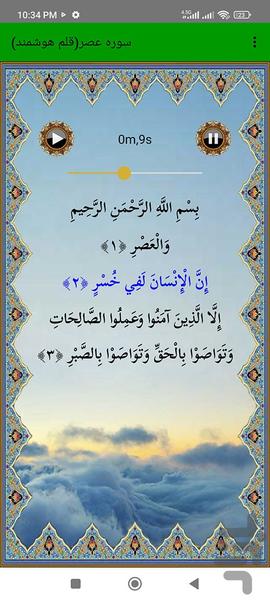 10:34 PM
4.5G
123
سوره عصر(قلم هوشمند)
0m,9s
بِسْمِ اللَّهِ الرَّحْمَنِ الرَّحِيمِ
وَالْعَصْرِ ﴿۱﴾
إِنَّ الْإِنْسَانَ لَفِي خُسْرٍ ﴿۲﴾
إِلَّا الَّذِينَ آمَنُوا وَعَمِلُوا الصَّالِحَاتِ
وَتَوَاصَوْا بِالْحَقِّ وَتَوَاصَوْا بِالصَّبْرِ ﴿۳﴾